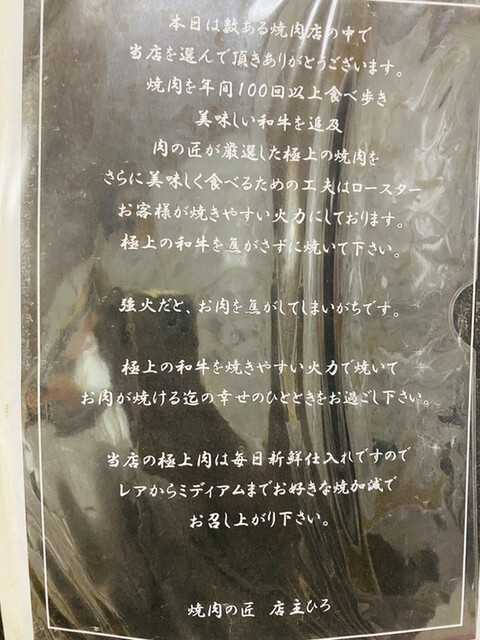 本日は数ある焼肉店の中で
当店を選んで頂きありがとうございます。
焼肉を年間100回以上食べ歩き
美味しい和牛を追及
肉の匠が厳選した極上の焼肉を
さらに美味しく食べるための工夫はロースター
お客様が焼きやすい火力にしております。
極上の和牛を焦がさずに焼いて下さい。
強火だと、お肉を焦がしてしまいがちです。
極上の和牛を焼きやすい火力で焼いて
お肉が焼ける迄の幸せのひとときをお過ごし下さい。
当店の極上肉は毎日新鮮仕入れですので
レアからミディアムまでお好きな焼加減で
お召し上がり下さい。
焼肉の匠 店主ひろ